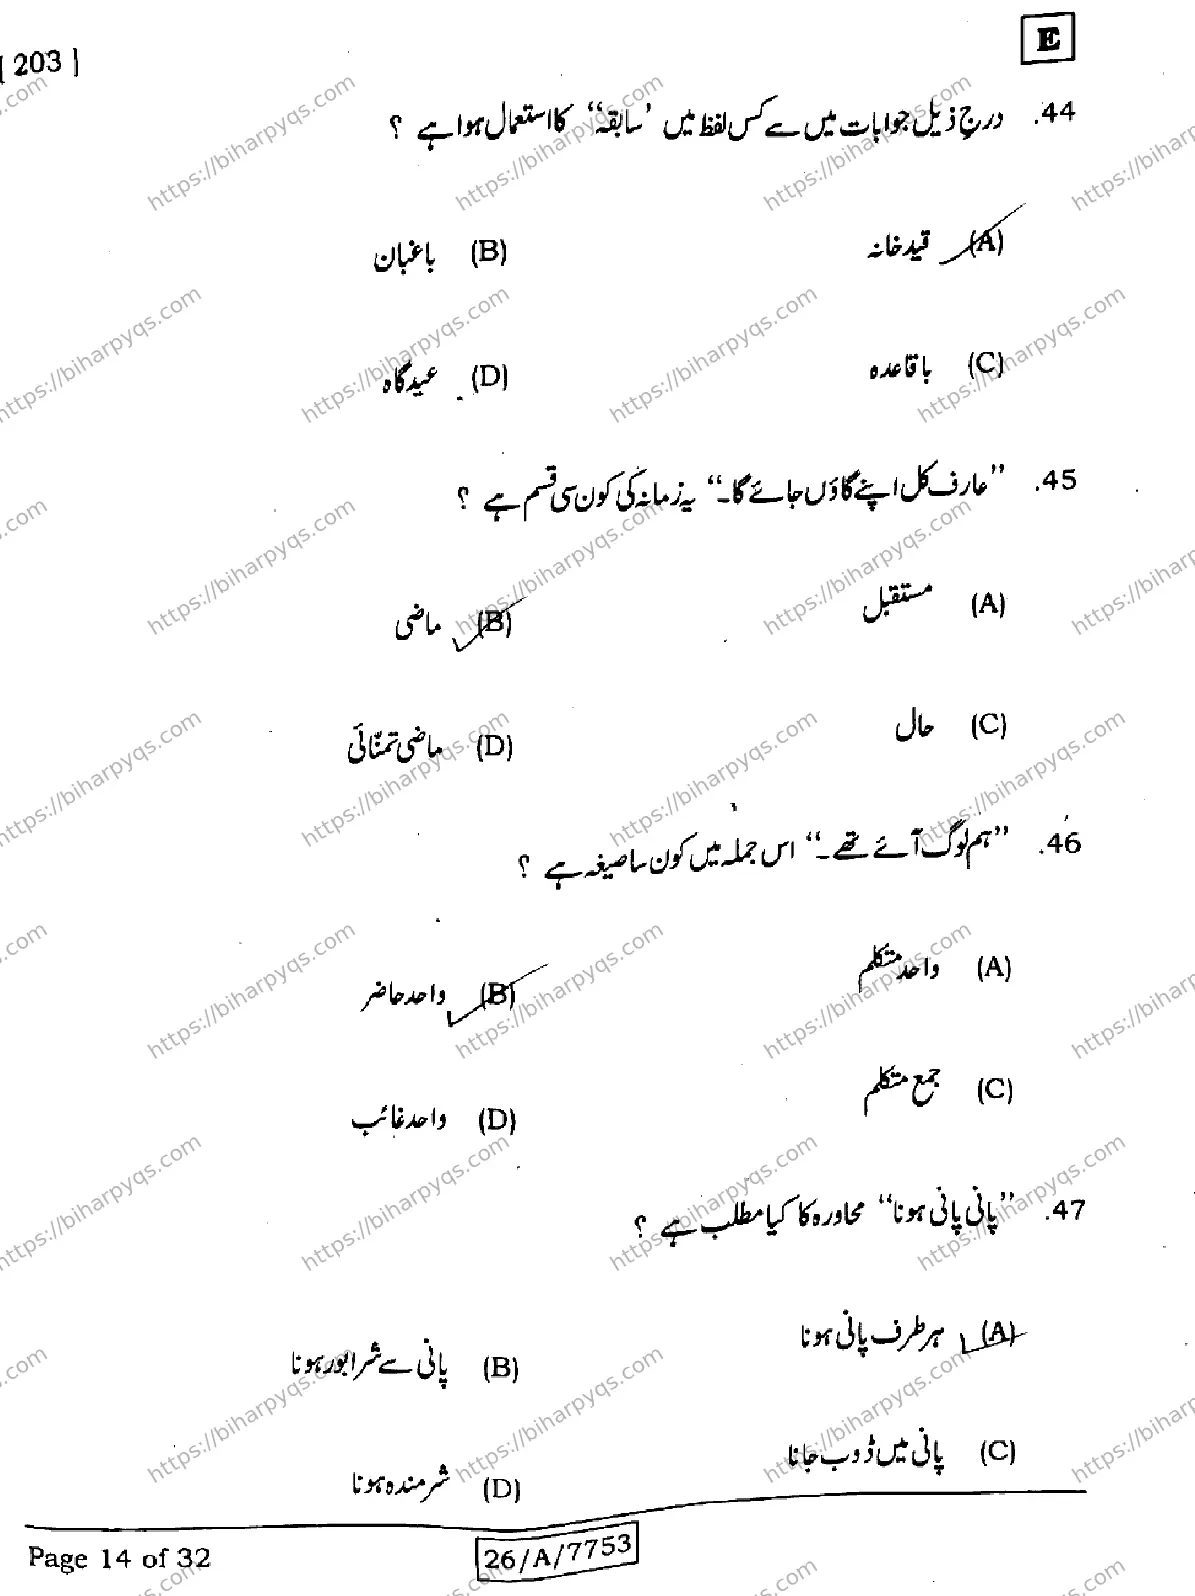 [ 203 ]
E
44. درج ذیل جوابات میں سے کس لفظ میں ’سابقہ‘‘ کا استعمال ہوا ہے ؟
(A) قیدخانہ
(B) باغبان
(C) باقاعدہ
(D) عیدگاہ
45. ’’عارف کل اپنے گاؤں جائے گا۔‘‘ یہ زمانہ کی کون سی قسم ہے ؟
(A) مستقبل
(B) ماضی
(C) حال
(D) ماضی تمنّائی
46. ’’ہم لوگ آئے تھے۔‘‘ اس جملہ میں کون سا صیغہ ہے ؟
(A) واحد متکلم
(B) واحد حاضر
(C) جمع متکلم
(D) واحد غائب
47. ’’پانی پانی ہونا‘‘ محاورہ کا کیا مطلب ہے ؟
(A) ہر طرف پانی ہونا
(B) پانی سے شرابور ہونا
(C) پانی میں ڈوب جانا
(D) شرمندہ ہونا
Page 14 of 32
26/A/7753
https://biharpyqs.com